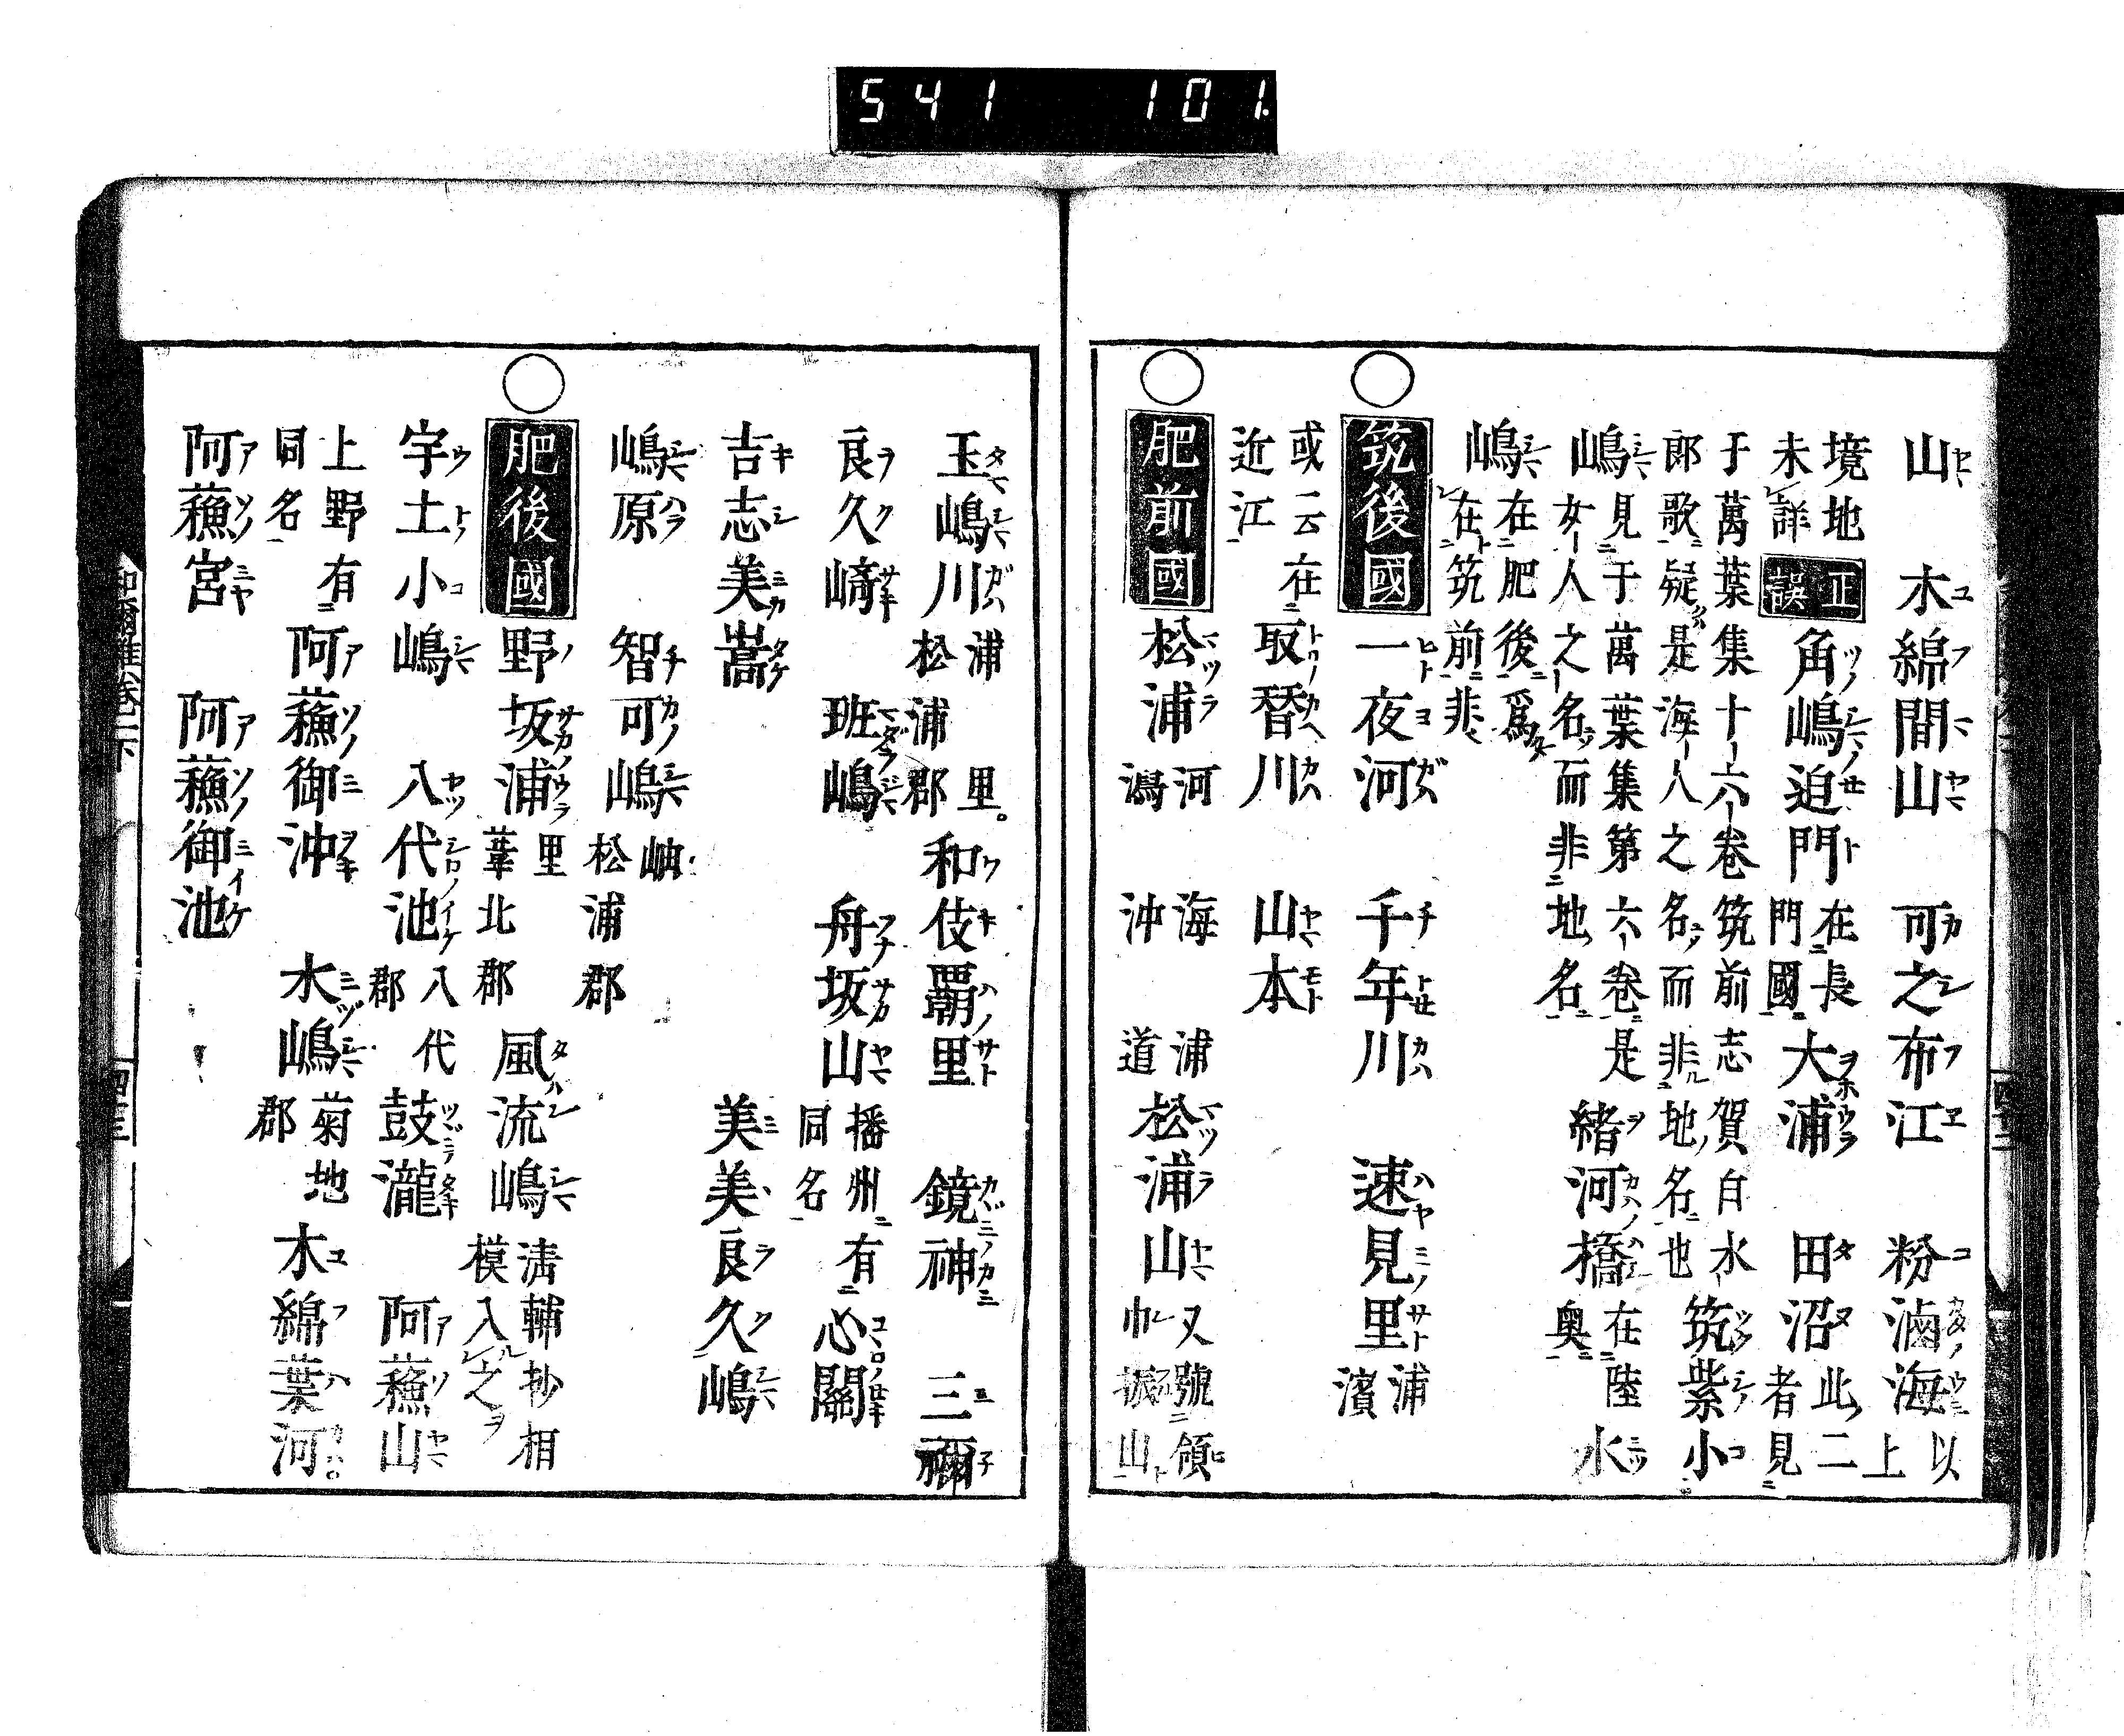 541 101
山 木綿間山 可之布江 粉滷海 以上
境地未詳 正誤 角嶋迫門 在長門國 大浦 田沼 此二者見
于萬葉集十六卷筑前志賀白水郎歌疑是海人之名而非地名也 筑紫小
嶋 見于萬葉集第六卷是女人之名而非地名 緒河橋 在陸奥 水
嶋 在肥後爲在筑前非
○筑後國 一夜河 千年川 速見里 浦濱
或云在近江 取替川 山本
○肥前國 松浦 河潟 海沖 浦道 松浦山 又號領巾振山
玉嶋川 浦 里 松浦郡 和伎覇里 鏡神 三禰
良久﨑 班嶋 舟坂山 播州有同名 心關
吉志美嵩 美美良久嶋
嶋原 智可嶋 岫 松浦郡
○肥後國 野坂浦 里 葦北郡 風流嶋 清輔抄相模入之
宇土小嶋 八代池 八代郡 鼓瀧 阿蘓山
上野有同名 阿蘓御沖 水嶋 菊地郡 木綿葉河
阿蘓宮 阿蘓御池